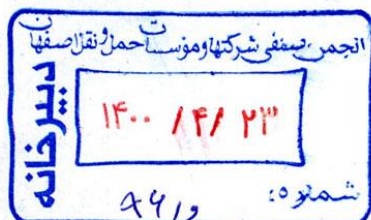 انجمن صنفی شرکتها و مؤسسات حمل و نقل اصفهان
دبیرخانه
۱۴۰۰ /۴/ ۲۳
شماره: